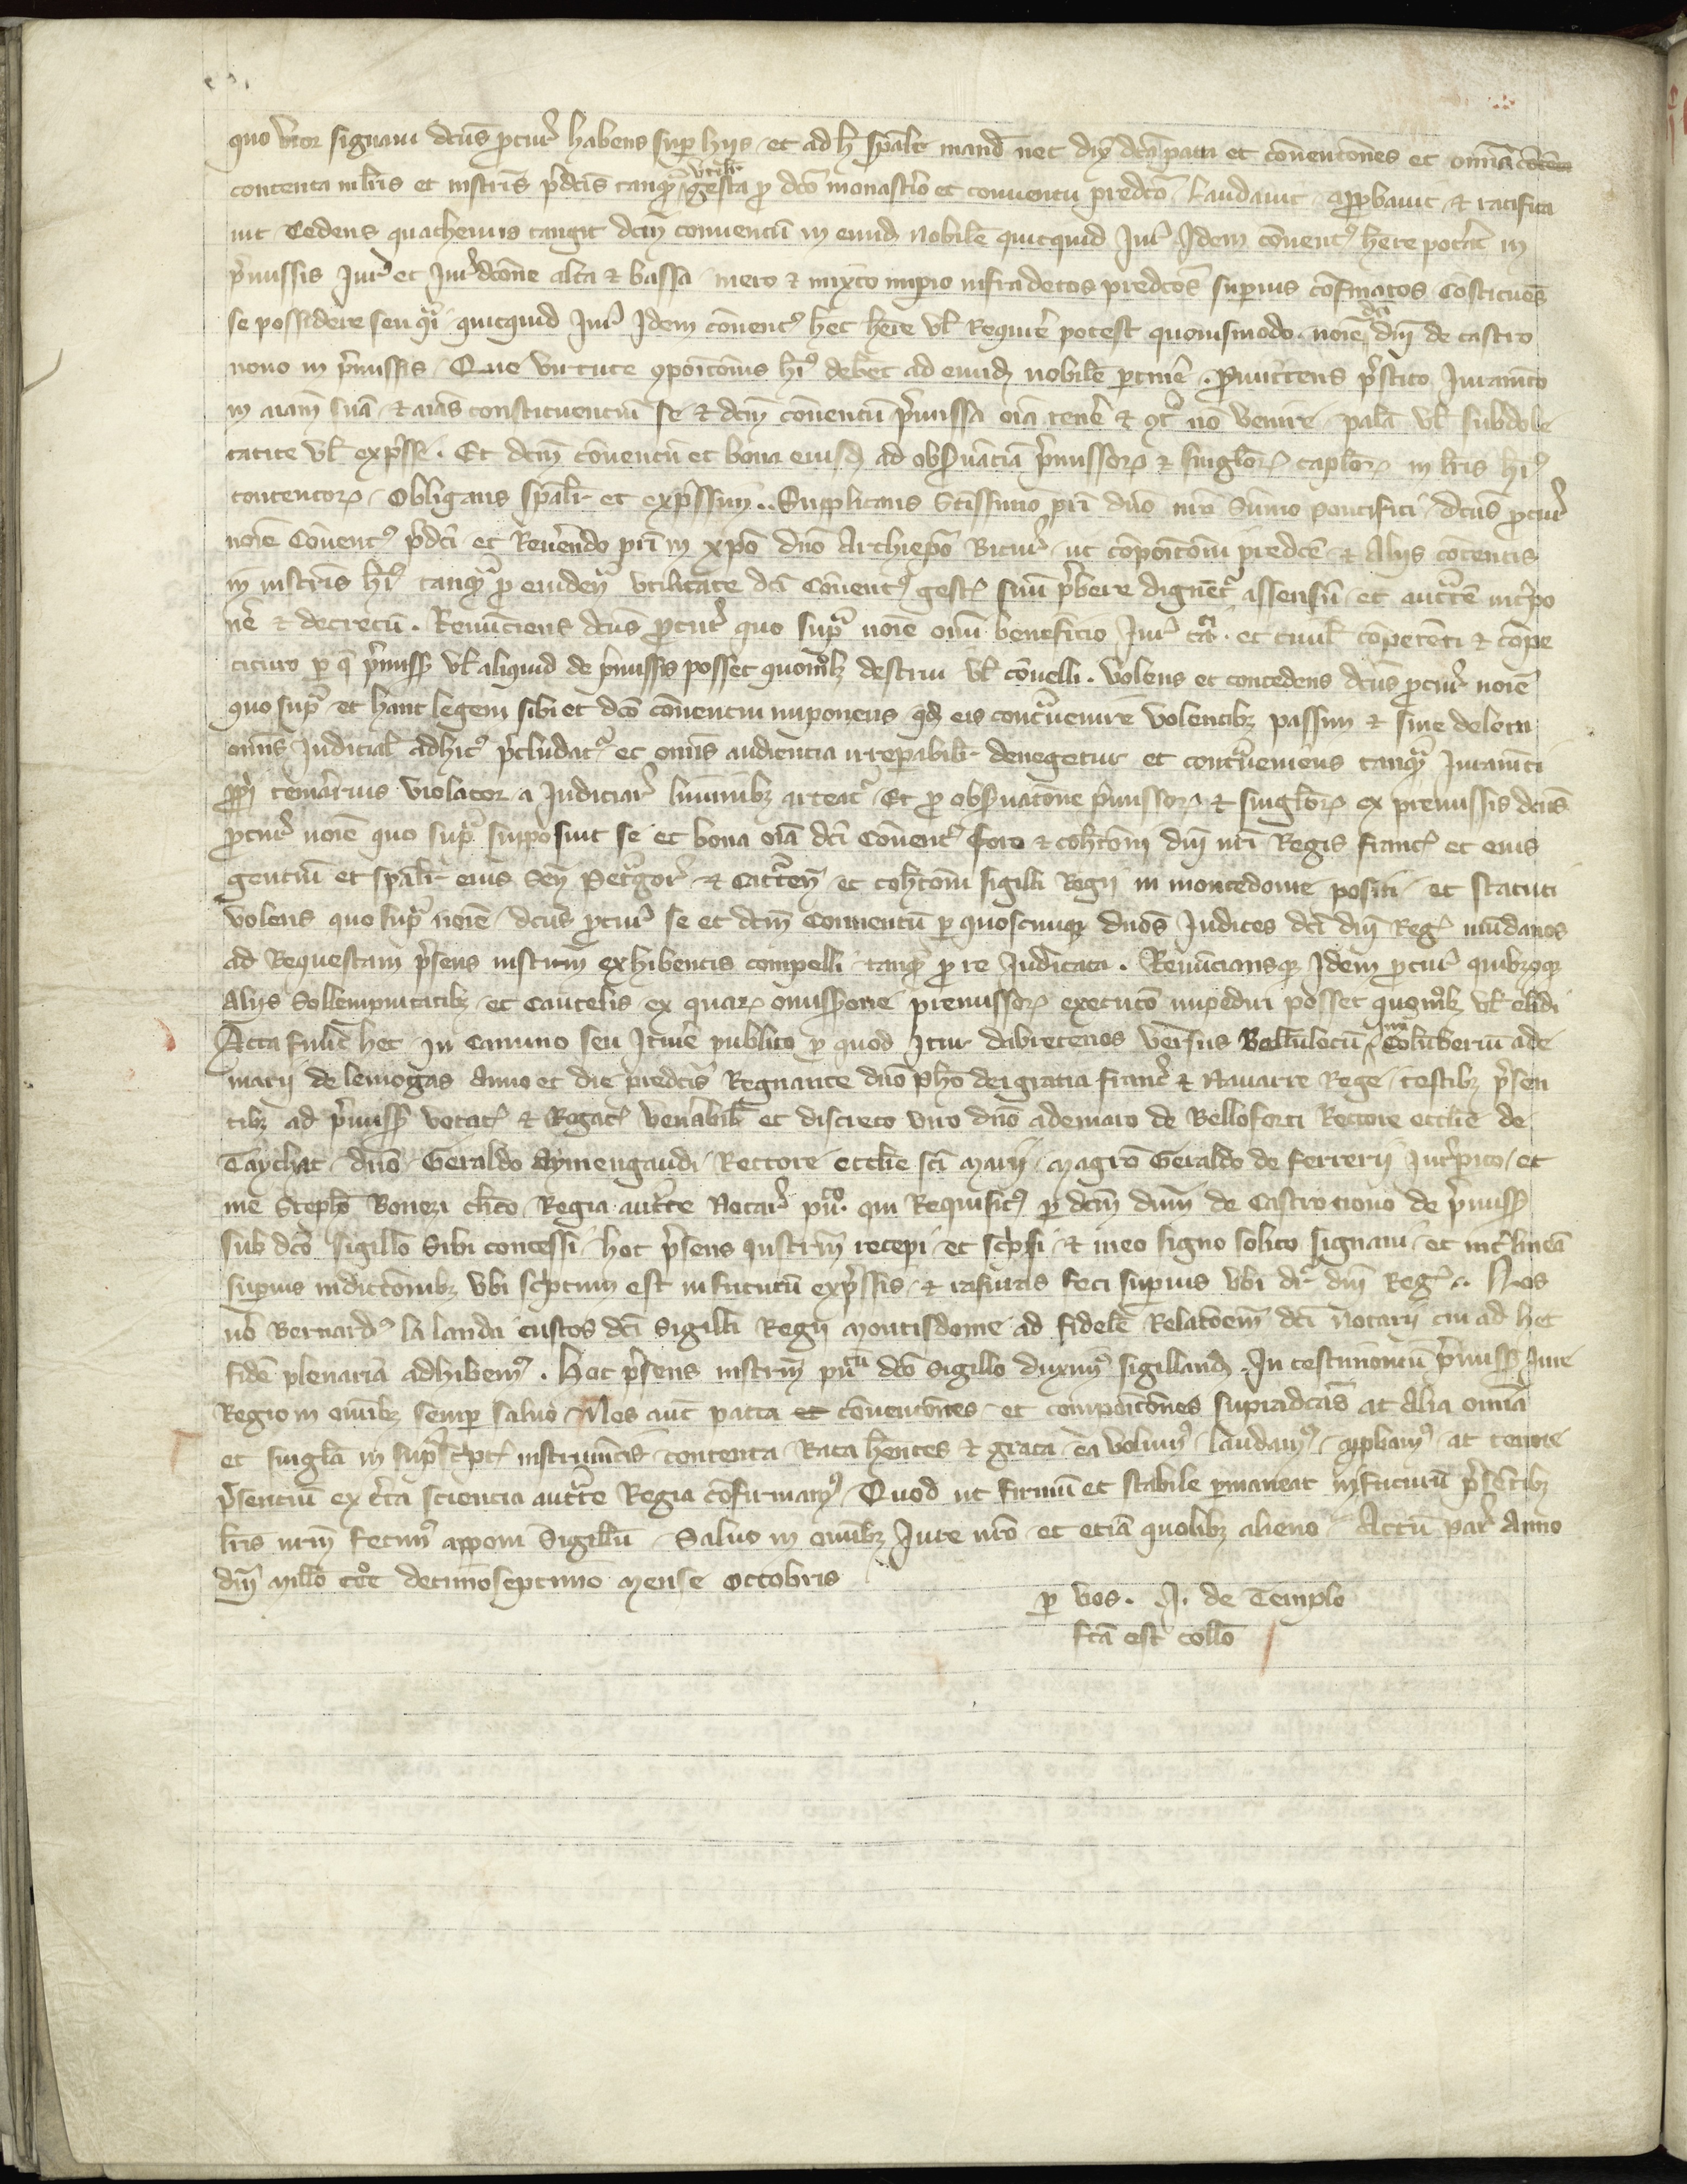 quo vtor signaui dcūs pcur̄ habens sup hiis et ad h̄ sp̄alr mand̄ nec diy dcā pacta et cōuentōnes et omīa
contenta in lr̄is et instrīs p̄dcīs tanq̄ vtilr gesta p dcō monastīo et conuentu predcō laudauit appbauit et ratifica
uit Cedens quathenus tangit dcm̄ conuentū in eund̄ nobilē quicquid Jur̄ Idem cōuent⁹ h̄ere poterit in
p̄missis Jur̄ et Jur̄dcōne alta et bassa mero et mixto imp̄io infra dcos predcōs superius cōfrmatos Cōstituēs
se possidere seu qͥ quicquid Jur̄ Idem cōuent⁹ h̄et h̄ere vl̄ Requirē potest quouismodo noīe dc̄i dn̄i de castro
nouo in p̄missis Que virtute ꝯpoītonis hī⁹ debet ad eund̄ nobilē ptinē . Pmittens p̄stito Juramto
in aiam suā et aias constituentiū se et dcm̄ cōuentū p̄missa oīa tenē et ꝯt̄ nō venire palā vl̄ subdole
tacite vl̄ exp̄sse . Et dcm̄ cōuentū et bona eiusd̄ ad obsuātiā p̄missoꝝ et singloꝝ caploꝝ in lr̄is hī⁹
contentoꝝ Obligans sp̄alr et exp̄ssim .. Supplicans Sc̄issimo pr̄i dn̄o nr̄o Sūmo pontifici dcūs pcur̄
noīe Cōuent⁹ p̄dcī et Reuerēndo pr̄i in xp̄o dn̄o Archiepō Bitur̄ ut cōpoītoni predcē et Aliis cōtentis
in instrīs hī⁹ tanq̄ p euidēn vtilitate dcī Cōuent⁹ gest̄ suū p̄bere dignēt̄ assensū et auctte int̄po
nē et decretū . Renūciens dcūs pcur̄ quo supͣ noīe omī beneficio Jur̄ cā et ciuil̄ cōpetēti et cōpe
tituro p q̄ p̄miss̄ vl̄ aliquid de p̄missis posset quomolibꝫ destrui vl̄ cōuelli . Volens et concedens dcūs pcur̄ noīe
quo supͣ et hanc legem sibi et dcō cōuentui imponens qd̄ eis cont̄uenire volentibꝫ passim et sine delectu
omīs Judicial̄ adhit⁹ p̄cludat̄ et omīs audiencia irrepabilr denegetur et cont̄ueniens tanq̄ Juramti
ppii temerarius violator a Judiciar̄ liminibꝫ arceat̄ Et p obsuatōne p̄missoꝝ et singloꝝ ex premissis dcūs
pcur̄ noīe quo supͣ supposuit se et bona oīa dcī Cōuent⁹ foro et cohcōni dn̄i nr̄i Regis franc̄ et eius
gentiū et sp̄alr eius Sen̄ Petͣgor̄ et Catͣcen̄ et cohcōni sigilli Regii in montedome positi et statuti
volens quo supͣ noīe dcūs pcur̄ se et dcm̄ Conuentū p quoscumqꝫ dn̄os Judices dcī dn̄i Reḡ mūdanos
ad Requestam p̄sens instrum̄ exhibentis compelli tanq̄ p re Judicata . Renūciansqꝫ Idem pcur̄ quibꝫcqꝫ
Aliis Sollempnitatibꝫ et Cautelis ex quaꝝ omissione premissoꝝ executō impediri posset quomolibꝫ vl̄ elidi
Acta fuīt hec in Camino seu Itinē publico p quod Itur dabretenos versus Bellūlocū Colūberiū ade
marii de lemogas Anno et die predcīs Regnante dn̄o Pho dei gratia franc̄ et Nauarre Rege testibꝫ p̄sen
tibꝫ ad p̄miss̄ vocat̄ et Rogat̄ venābilī et discreto viro dn̄o ademaro de Belloforti Rectore ecclīe de
Taychac dn̄o Geraldo Aymengaudi Rectore ecclīe scī marii magrō Geraldo de ferrerii Jur̄pito et
me Stepho Bonezi cl̄ico Regia auctte Notar̄ puͦ qui Requisit⁹ p dcm̄ dnm̄ de Castronouo de p̄miss̄
sub dcō sigillo Sibi concessi hoc p̄sens instrm̄ recepi et sc̄psi et meo signo solito signaui et int̄lineā
supius in dictōnibꝫ vbi sc̄ptum est in futurū exp̄ssis et rasuras feci supius vbi dr̄ dn̄i Reḡ .. Nos
vō Bernard⁹ la landa custos dcī Sigilli Regii montisdome ad fidelē Relatōem dcī notarii cui ad hec
fidē plenariā adhibem⁹ . Hoc p̄sens instrm̄ pu͞cū dcō Sigillo duxim⁹ sigilland̄ In testimoniū p̄miss̄ Jure
Regio in omībꝫ semp saluo Nos aut pacta et cōuentōnes et compoītōnes supradcās ac Alia omīa
et singlā in supͣsc̄pt̄ instrumtis contenta Rata h̄entes et grata ea volum⁹ laudam⁹ appbam⁹ ac tenore
p̄sentiū ex c̄ta sciencia auctte Regia cōfirmam⁹ Quod ut firmū et stabile pmaneat in futurū p̄sētibꝫ
lr̄is nr̄m fecim⁹ apponi Sigillū Saluo in omībꝫ Jure nr̄o et etiā quolibꝫ alieno Actū par̄ Anno
dn̄i millo ccͦc decimoseptimo mense Octobris
p vos . J. de Templo
fcā est collō